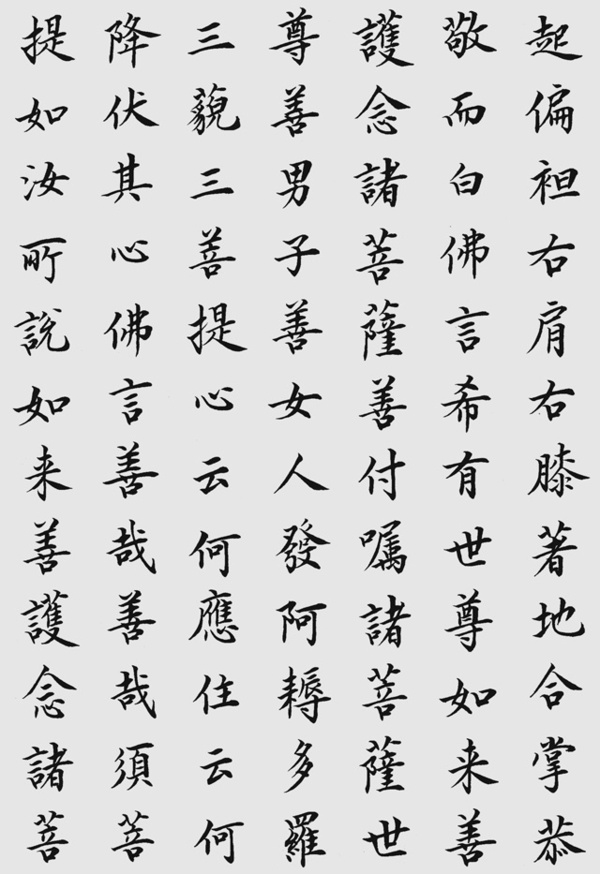 起偏袒右肩右膝著地合掌恭
敬而白佛言希有世尊如来善
護念諸菩薩善付嘱諸菩薩世
尊善男子善女人發阿耨多羅
三藐三菩提心云何應住云何
降伏其心佛言善哉善哉須菩
提如汝所說如来善護念諸菩